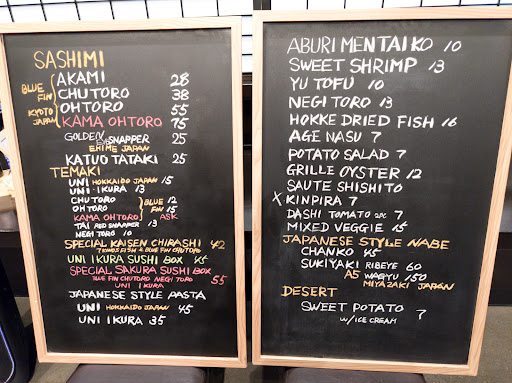 SASHIMI
BLUE FIN KYOTO JAPAN
AKAMI 28
CHUTORO 38
OHTORO 55
KAMA OHTORO 75
GOLDEN EYE SNAPPER 25
EHIME JAPAN
KATUO TATAKI 25
TEMAKI
UNI HOKKAIDO JAPAN 15
UNI IKURA 13
CHUTORO BLUE 12
OHTORO FIN 15
KAMA OHTORO ASK
TAI RED SNAPPER 13
NEGI TORO 10
SPECIAL KAISEN CHIRASHI 42
7 KINDS FISH & BLUE FIN CHUTORO
UNI IKURA SUSHI BOX
SPECIAL SAKURA SUSHI BOX
BLUE FIN CHUTORO NEGI TORO 55
UNI IKURA
JAPANESE STYLE PASTA
UNI HOKKAIDO JAPAN 45
UNI IKURA 35
ABURI MENTAIKO 10
SWEET SHRIMP 13
YU TOFU 10
NEGI TORO 13
HOKKE DRIED FISH 16
AGE NASU 7
POTATO SALAD 7
GRILLE OYSTER 12
SAUTE SHISHITO
X KINPIRA 7
DASHI TOMATO 2PC 7
MIXED VEGGIE 15
JAPANESE STYLE NABE
CHANKO 45
SUKIYAKI RIBEYE 60
A5 WAGYU 150
MIYAZAKI JAPAN
DESERT
SWEET POTATO 7
W/ICE CREAM